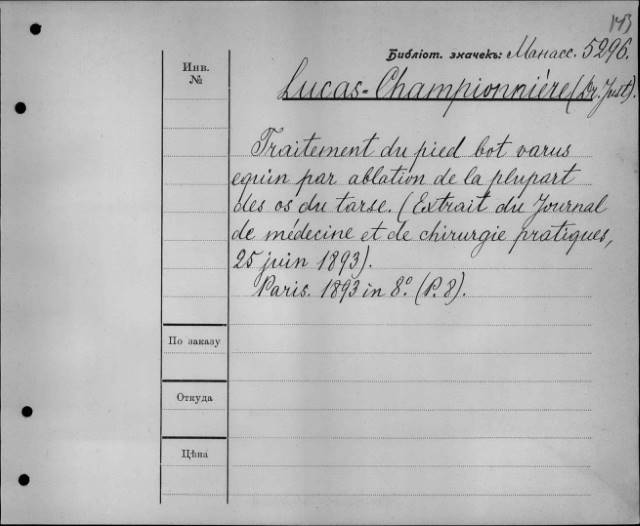 143
Библіот. значекъ: Манасс. 5296.
Инв.
№
Lucas-Championnière (Dr. Just).
Traitement du pied bot varus
equin par ablation de la plupart
des os du tarse. (Extrait du Journal
de médecine et de chirurgie pratiques,
25 juin 1893).
Paris. 1893 in 8º. (P. 8).
По заказу
Откуда
Цѣна